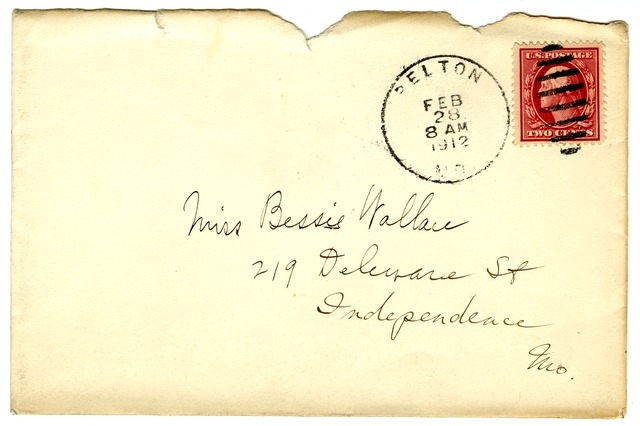 BELTON
FEB
28
8 AM
1912
MO
U.S. POSTAGE
TWO CENTS
Miss Bessie Wallace
219 Deleware St
Independence
Mo.